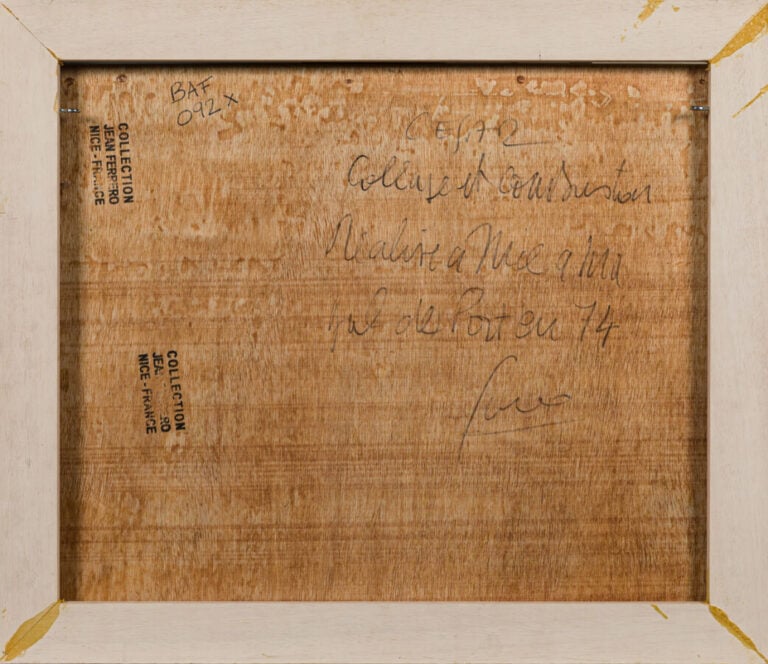 BAF
092x
COLLECTION
JEAN FERRERO
NICE - FRANCE
CESAR
Collage et combustion
Réalisé a Nice a
de Port en 74
COLLECTION
JEA RO
NICE - FRANCE